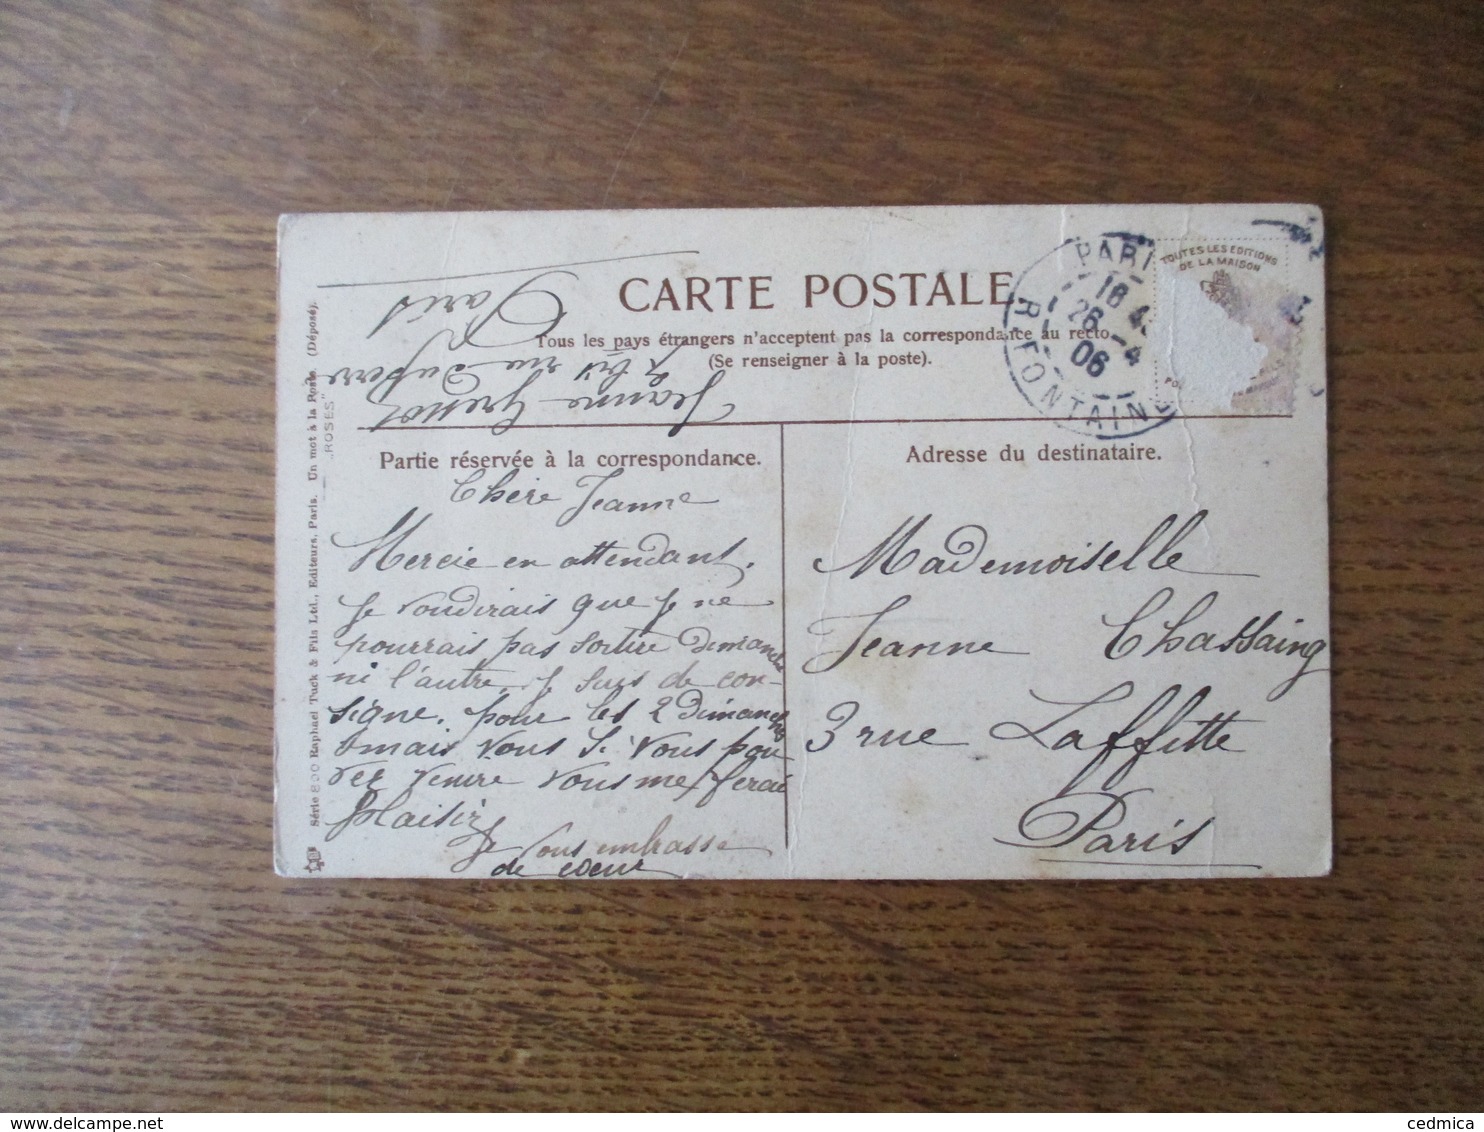 CARTE POSTALE
Tous les pays étrangers n'acceptent pas la correspondance au recto
(Se renseigner à la poste).
PARI
18 4
26 -4
06
R. FONTAIN
TOUTES LES EDITIONS
DE LA MAISON
Jeanne
bis rue Duperré
Paris
Partie réservée à la correspondance.
Chère Jeanne
Mercie en attendant.
Je voudirais que je ne
pourrais pas sortire dimanche
ni l'autre je suis de con-
signe. pour les 2 dimanches
mais vous si vous pou
vez venire vous me ferai
plaisir
Je vous embrasse
de cœur
Adresse du destinataire.
Mademoiselle
Jeanne Chassaing
3 rue Laffitte
Paris
Série 800 Raphael Tuck & Fils Ltd., Editeurs, Paris. Un mot à la Poste. (Déposé).
„ROSES"
cedmica